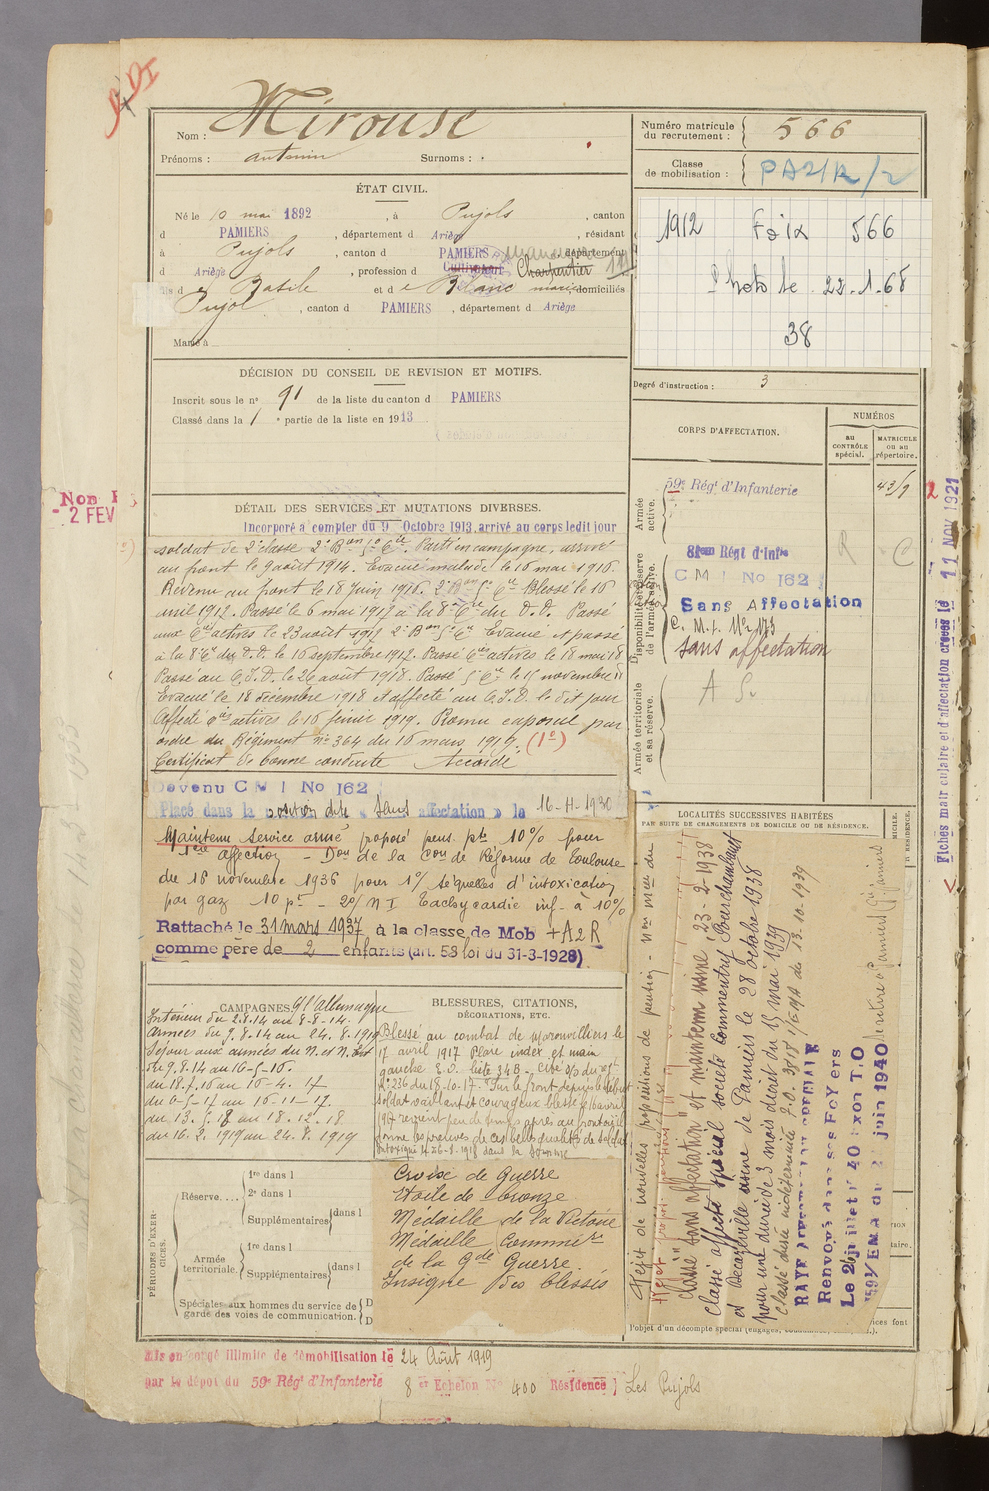 Nom : Mirouse
Prénoms : antonin Surnoms : .
ÉTAT CIVIL.
Né le 10 mai 1892 , à Pujols , canton
d PAMIERS , département d Ariège , résidant
à Pujols , canton d PAMIERS département
d Ariège , profession d Cultivateur Charpentier
fils d e Basile et d e Blanc domiciliés
Pujol , canton d PAMIERS , département d Ariège
Marié à
DÉCISION DU CONSEIL DE REVISION ET MOTIFS.
Inscrit sous le n° 91 de la liste du canton d PAMIERS
Classé dans la 1 e partie de la liste en 1913
DÉTAIL DES SERVICES ET MUTATIONS DIVERSES.
Incorporé à compter du 9 Octobre 1913, arrivé au corps ledit jour
soldat de 2e classe 2e Bon 5e Cie. Parti en campagne, arrivé
au front le 9 août 1914. Evacué malade le 16 mai 1916.
Revenu au front le 18 juin 1916. 2e Bon 5e Cie Blessé le 16
avril 1917. Passé le 6 mai 1917 à la 8e Cie du D.D. Passé
aux Cies actives le 23 août 1917 2e Bon 5e Cie Evacué et passé
à la 8e Cie du D.D. le 16 septembre 1917. Passé Cies actives le 18 mai 18
Passé au C.I.D. le 26 août 1918. Passé 5e Cie le 15 novembre 18
Evacué le 18 décembre 1918 et affecté au C.I.D. le dit jour
Affecté Cies actives le 16 février 1919. Promu caporal par
ordre du Régiment n° 364 du 16 mars 1919. (1°)
Certificat de bonne conduite Accordé
Devenu C M I No 162
Placé dans la position dite « Sans affectation » le 16-11-1930
Maintenu service armé proposé pens. pte 10% pour
1ère affection - Don de la Con de Réforme de Toulouse
du 16 novembre 1936 pour 1°/ séquelles d'intoxication
par gaz 10 pt - 2°/ N I Tachycardie inf. à 10%
Rattaché le 31 mars 1937 à la classe de Mob +A2R
comme père de 2 enfants (art. 58 loi du 31-3-1928)
CAMPAGNES Ct/ allemagne
Intérieur du 2.8.14 au 8-8-14.
Armées du 9.8.14 au 24.8.1919
Séjour aux armées du N. et N. Est
du 9.8.14 au 16-5-16.
du 18.7.16 au 16-4. 17
du 6-5-17 au 16-11-17
du 13. 5.18 au 18.12.18
du 16.2.1919 au 24.8.1919
BLESSURES, CITATIONS,
DÉCORATIONS, ETC.
Blessé au combat de Moronvilliers le
17 avril 1917 Plaie index et main
gauche E.O. Cité à l'o/ du régt
N° 236 du 18-10-17. "Sur le front depuis le début
soldat vaillant et courageux blessé le 16 avril
1917 revient peu de temps après au front et y
donne les preuves de ses belles qualités de soldat
Intoxiqué le 26-8-1918 dans la Somme
Croix de Guerre
Etoile de bronze
Médaille de la Victoire
Médaille Commve
de la Gde Guerre
Insigne des blessés
PÉRIODES D'EXERCICES.
Réserve....
1re dans l
2e dans l
Supplémentaires dans l
Armée territoriale.
1re dans l
Supplémentaires dans l
Spéciales aux hommes du service de
garde des voies de communication.
Mis en congé illimité de démobilisation le 24 Août 1919
par le dépôt du 59e Régt d'Infanterie 8 e Echelon N° 400 Résidence } Les Pujols
Numéro matricule
du recrutement : 566
Classe
de mobilisation : PA2/R/2
1912 Foix 566
Photo le 22-1-68
38
Degré d'instruction : 3
CORPS D'AFFECTATION.
NUMÉROS
au CONTRÔLE spécial.
MATRICULE ou au répertoire.
Armée active.
59e Régt d'Infanterie
Disponibilité et réserve de l'armée active.
81eme Régt d'Infie
C M I No 162
Sans Affectation
C. M. I. N° 173
sans affectation
R C
Armée territoriale et sa réserve.
A S.
LOCALITÉS SUCCESSIVES HABITÉES
PAR SUITE DE CHANGEMENTS DE DOMICILE OU DE RÉSIDENCE.
Rejet de nouvelles propositions de pension
Classé "sans affectation" et maintenu usine, 23-2-1938
Classé affecté spécial société Commentry Fourchambault
et Decazeville usine de Pamiers le 28 octobre 1938
pour une durée de 3 mois décret du 13 mai 1939
Classé durée indéterminée
RAYE AFFECTATION SPECIALE
Renvoyé dans ses FOYers
Le 2 juillet 40
juin 1940
Non
2 FEV
Fiches matriculaire et d'affectation créées le 11 NOV 1921